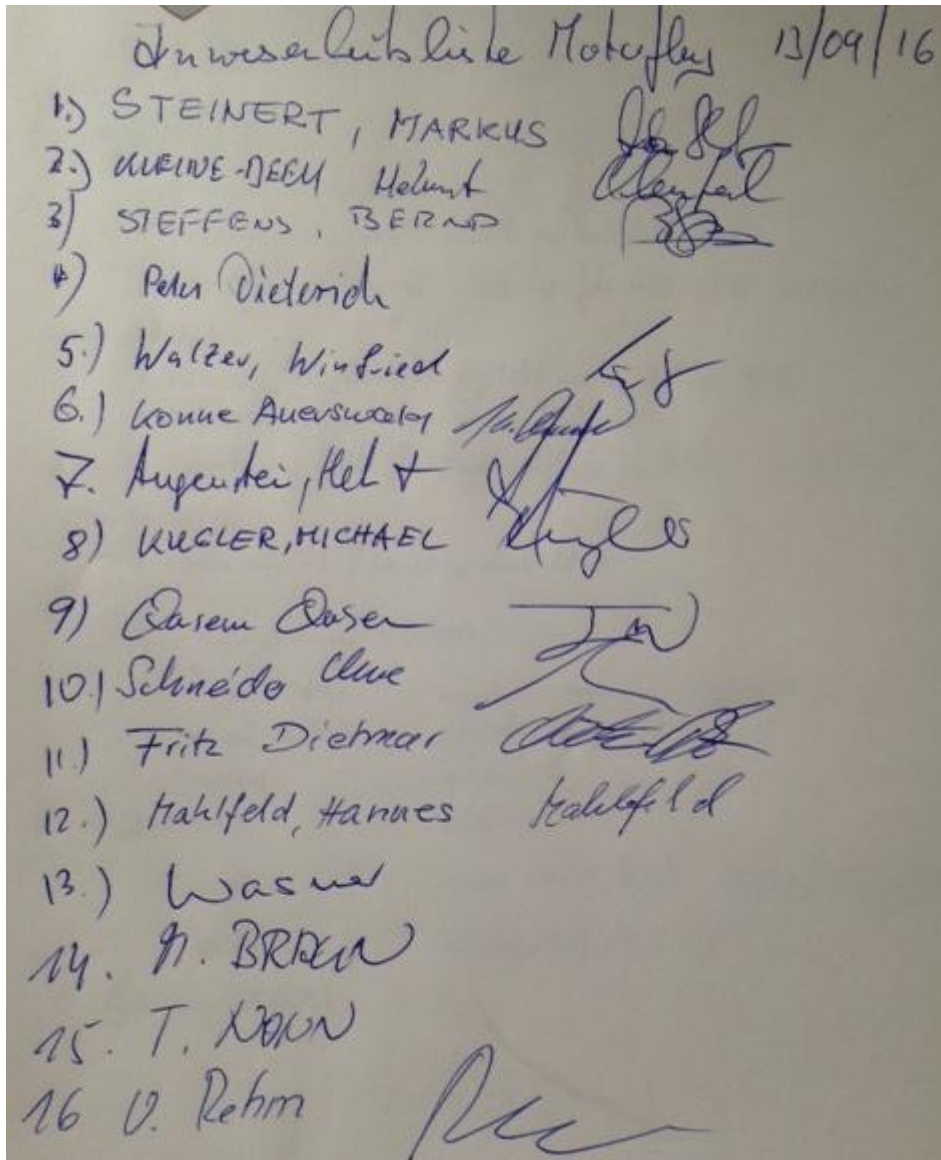 Anwesenheitsliste Motorflug 13/09/16
1.) STEINERT, MARKUS
2.) KLEINE-BECK Helmut
3) STEFFENS, BERND
4) Peter Dieterich
5.) Walzer, Winfried
6.) Auerswald
7. Augenstei, Hel t
8) KUGLER, MICHAEL Kugler
9) Qasem Qasem
10.) Schneider Uwe
11.) Fritz Dietmar
12.) Mahlfeld, Hannes Mahlfeld
13.) Wasner
14. M. BRAUN
15. T. NONN
16 U. Rehm